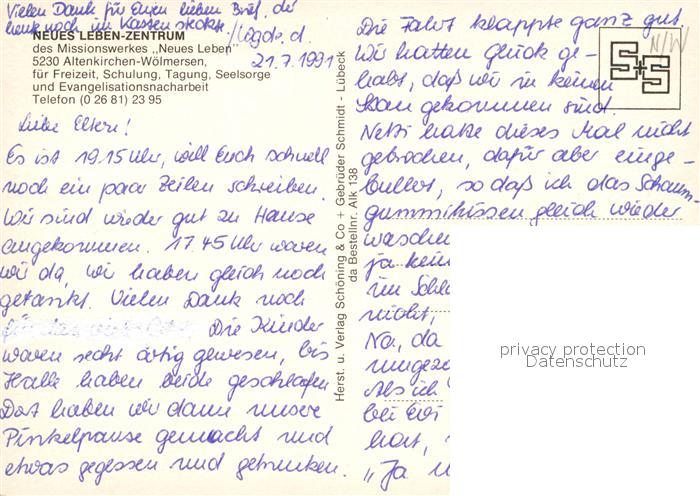 Vielen Dank für Euren lieben Brief, der
heute noch im Kasten steckte.
NEUES LEBEN-ZENTRUM
des Missionswerkes „Neues Leben"
5230 Altenkirchen-Wölmersen,
für Freizeit, Schulung, Tagung, Seelsorge
und Evangelisationsnacharbeit
Telefon (0 26 81) 23 95
d. 21.7.1991
Liebe Eltern!
Es ist 19.15 Uhr, will Euch schnell
noch ein paar Zeilen schreiben.
Wir sind wieder gut zu Hause
angekommen. 17.45 Uhr waren
wir da, wir haben gleich noch
getankt. Vielen Dank noch
Die Kinder
waren sehr artig gewesen, bis
Halle haben beide geschlafen
Dort haben wir dann unsere
Pinkelpause gemacht und
etwas gegessen und getrunken.
Herst. u. Verlag Schöning & Co + Gebrüder Schmidt - Lübeck
da Bestellnr. Alk 138
Die Fahrt klappte ganz gut.
Wir hatten Glück ge-
habt, daß wir in keinen
Stau gekommen sind.
Netti hatte dieses Mal nicht
gebrochen, dafür aber einge-
bullert, so daß ich das Schaum-
gummikissen gleich wieder
waschen
ja kein
im Schla
nicht,
Na, da
umgezo
Als ich
bei Evi
hat,
„Ja
S+S
N/W
privacy protection
Datenschutz